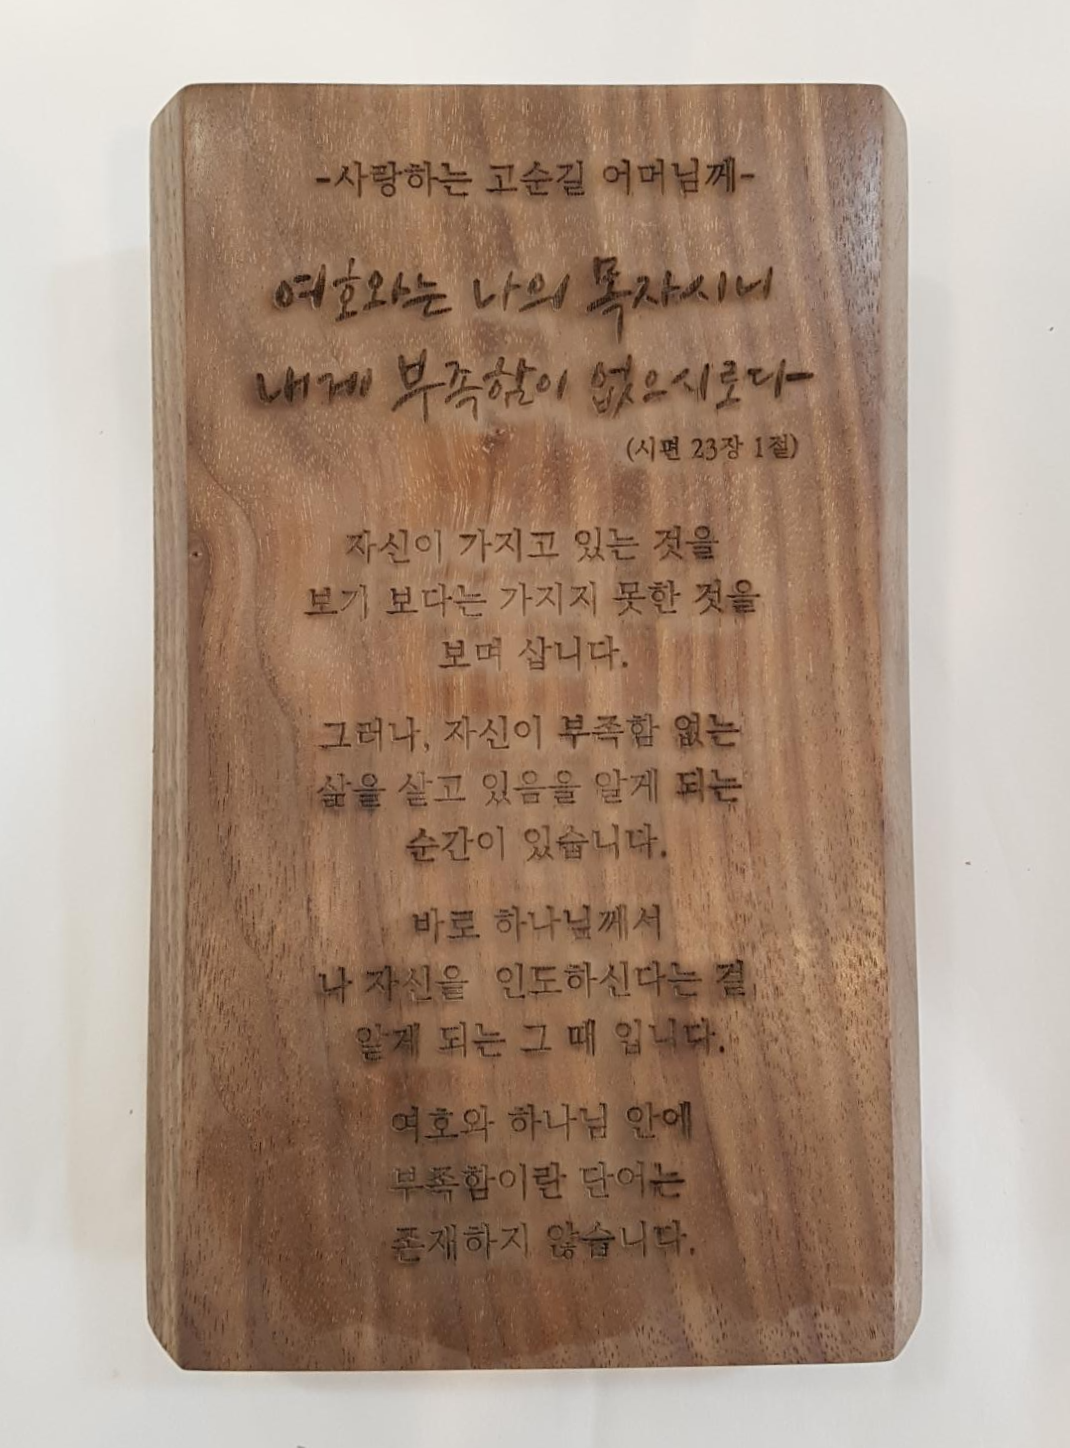 -사랑하는 고순길 어머님께-
여호와는 나의 목자시니
내게 부족함이 없으시로다
(시편 23장 1절)
자신이 가지고 있는 것을
보기 보다는 가지지 못한 것을
보며 삽니다.
그러나, 자신이 부족함 없는
삶을 살고 있음을 알게 되는
순간이 있습니다.
바로 하나님께서
나 자신을 인도하신다는 걸
알게 되는 그 때 입니다.
여호와 하나님 안에
부족함이란 단어는
존재하지 않습니다.